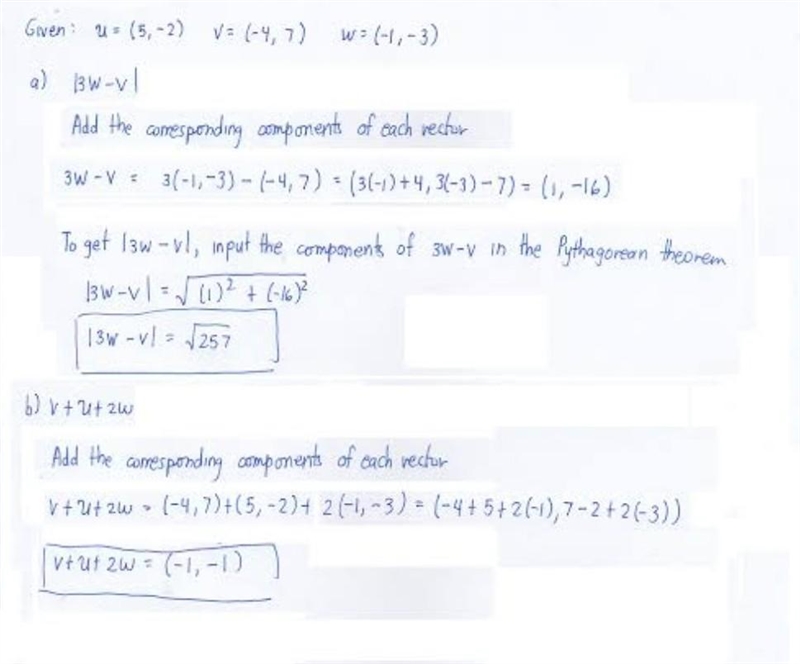 Given: u = (5, -2) v = (-4, 7) w = (-1, -3)
a) |3w-v|
Add the corresponding components of each vector
3w-v = 3(-1,-3) - (-4, 7) = (3(-1)+4, 3(-3)-7) = (1, -16)
To get |3w-v|, input the components of 3w-v in the Pythagorean theorem
|3w-v| = √(1)² + (-16)²
|3w-v| = √257
b) v+u+2w
Add the corresponding components of each vector
v+u+2w = (-4,7)+(5,-2)+ 2(-1,-3) = (-4+5+2(-1), 7-2+2(-3))
v+u+2w = (-1, -1)